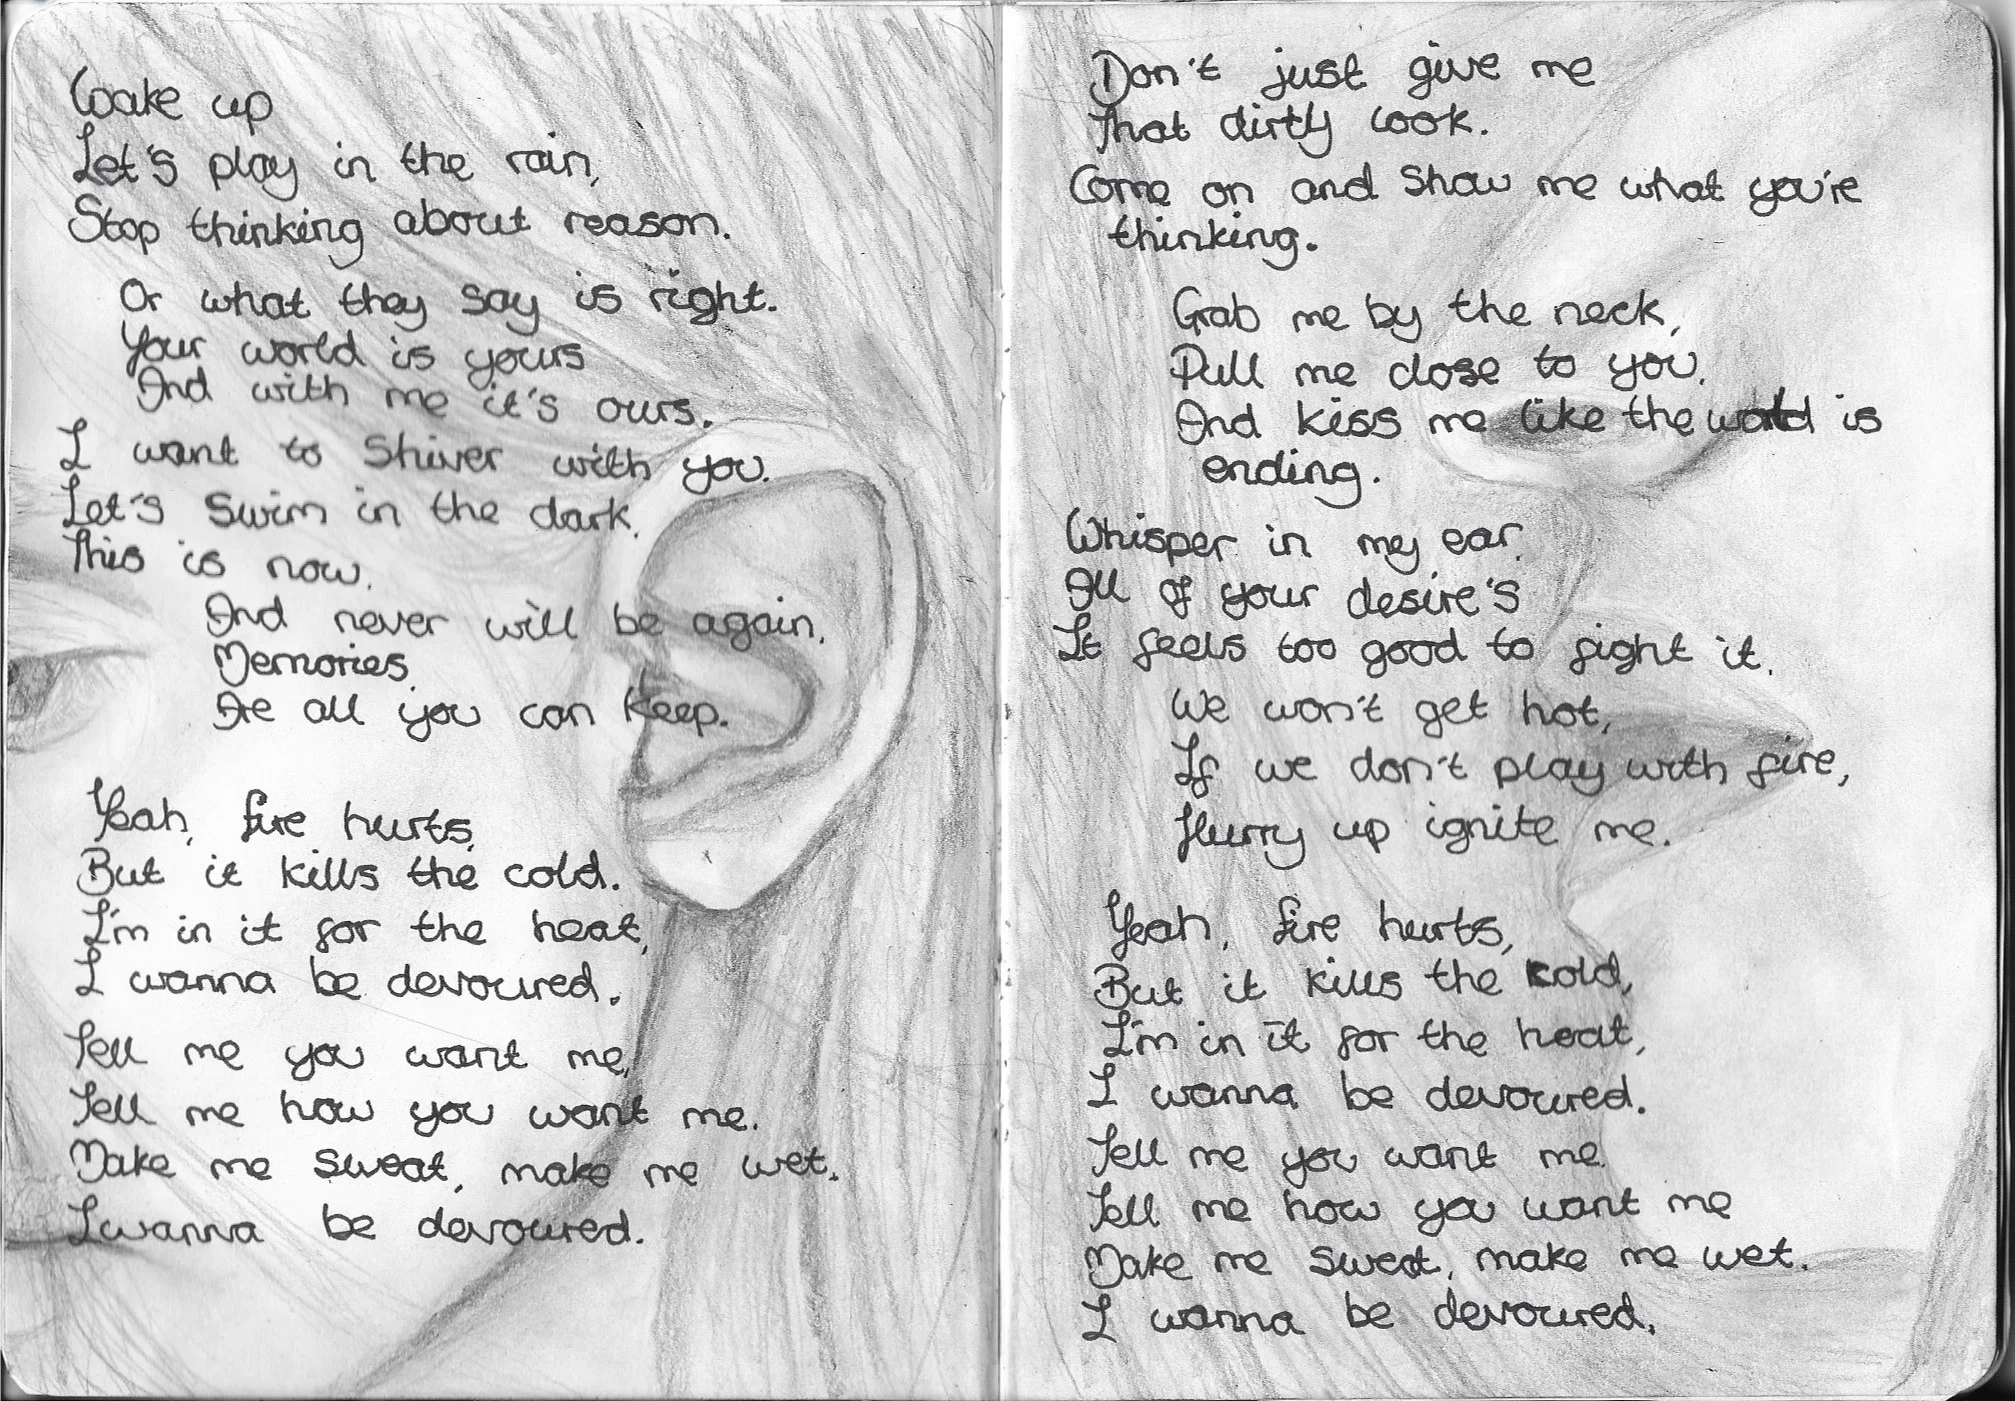 Wake up
Let's play in the rain,
Stop thinking about reason.
Or what they say is right.
Your world is yours
And with me it's ours.
I want to shiver with you.
Let's swim in the dark.
This is now.
And never will be again.
Memories.
Are all you can keep.
Yeah, fire hurts,
But it kills the cold.
I'm in it for the heat,
I wanna be devoured.
Tell me you want me,
Tell me how you want me.
Make me sweat, make me wet.
I wanna be devoured.
Don't just give me
That dirty look.
Come on and show me what you're
thinking.
Grab me by the neck,
Pull me close to you,
And kiss me like the world is
ending.
Whisper in my ear.
All of your desire's
It feels too good to fight it.
We won't get hot,
If we don't play with fire,
Hurry up ignite me.
Yeah, fire hurts,
But it kills the cold,
I'm in it for the heat,
I wanna be devoured.
Tell me you want me.
Tell me how you want me
Make me sweat, make me wet.
I wanna be devoured.